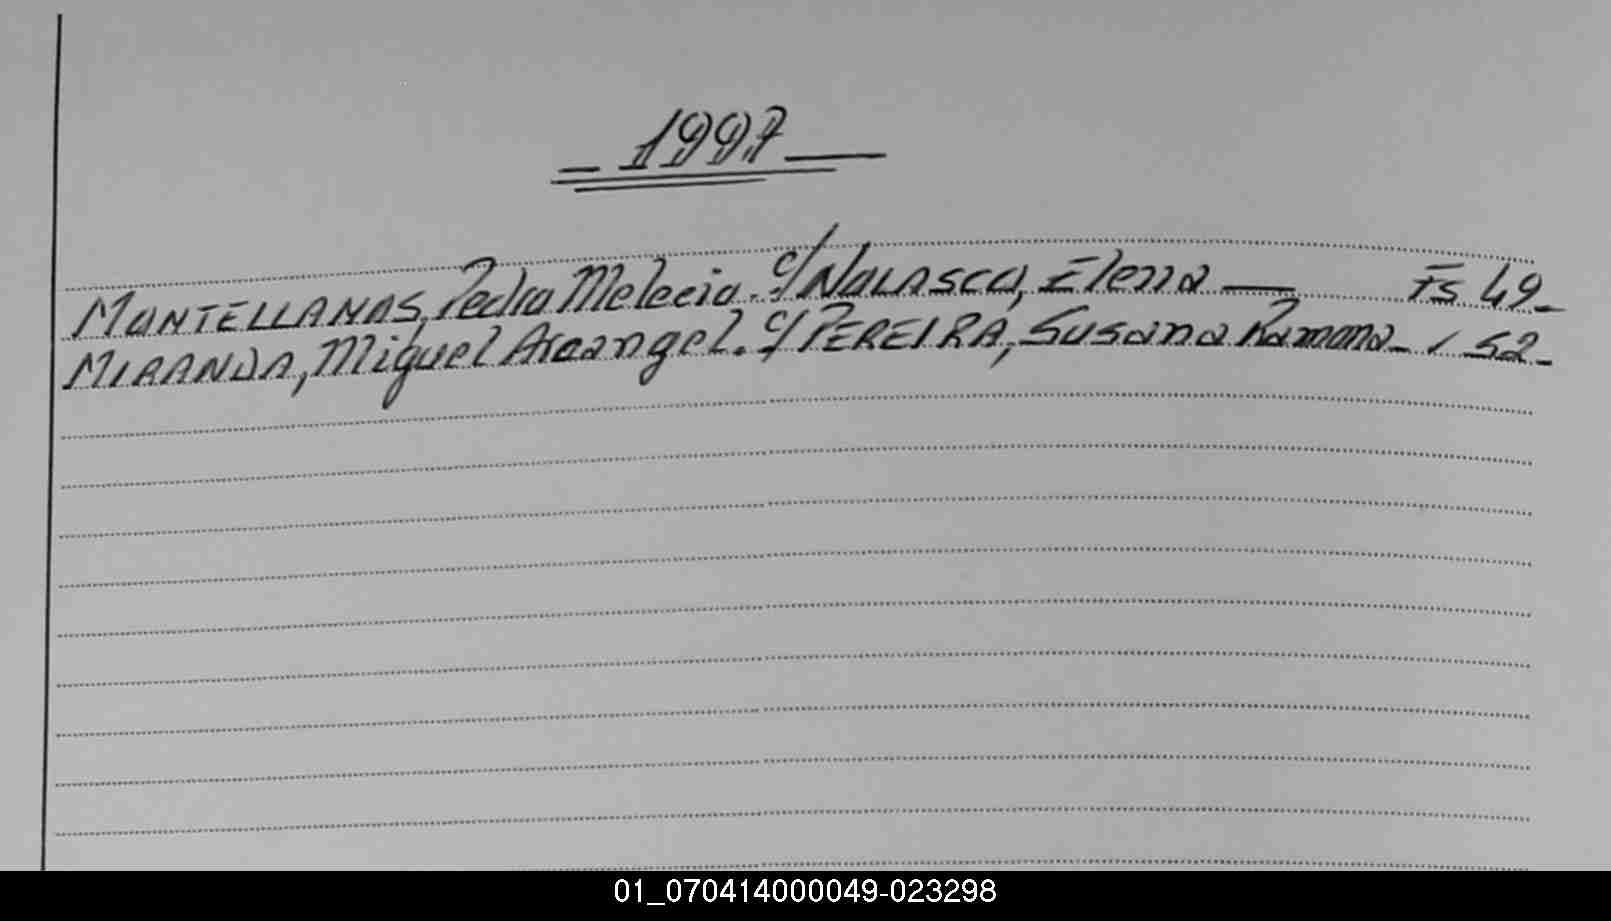 1997
MONTELLANOS, Pedro Melecio. c/ NOLASCO, Elena — Fs 49-
MIRANDA, Miguel Arcangel. c/ PEREIRA, Susana Ramona - " 52-
01_070414000049-023298